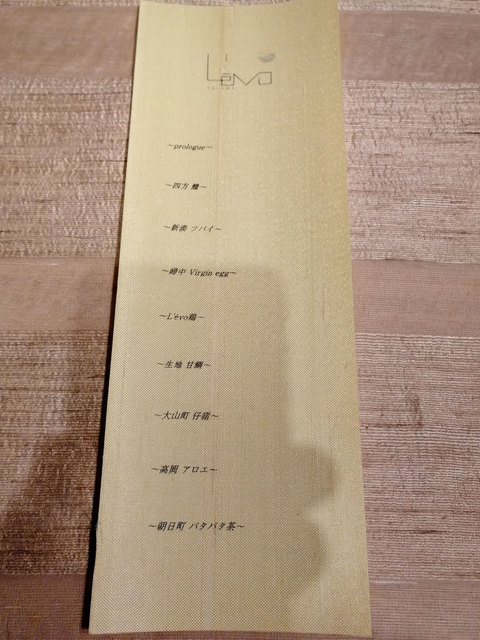 L'évo
TOYAMA
～prologue～
～四方 鰆～
～新湊 ツバイ～
～婦中 Virgin egg～
～L'évo鶏～
～生地 甘鯛～
～大山町 仔猪～
～高岡 アロエ～
～朝日町 バタバタ茶～